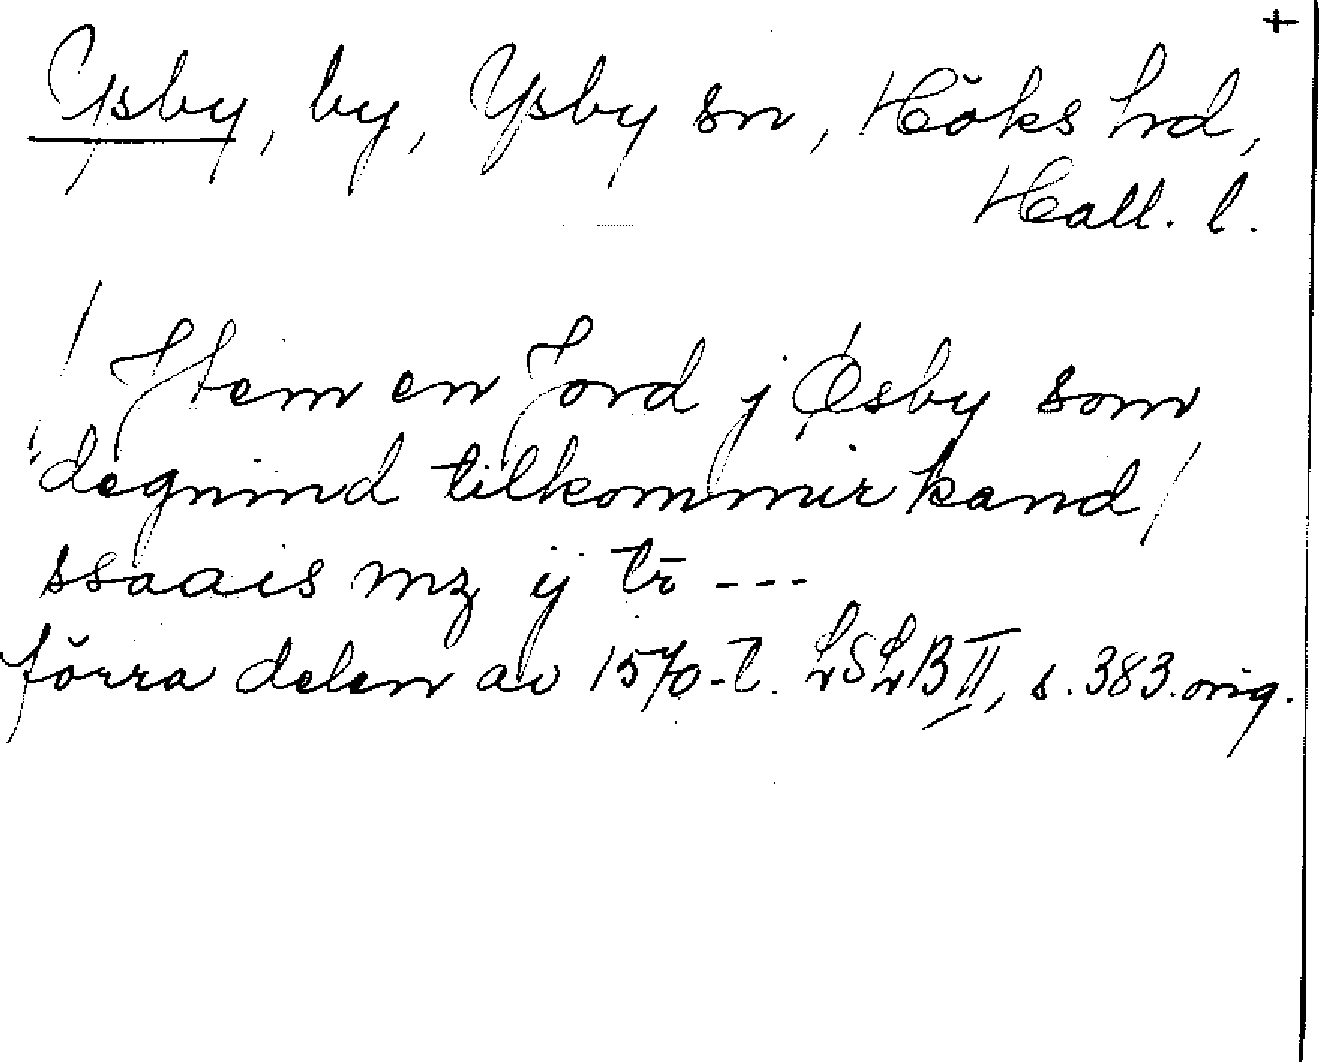 +
Ysby, by, Ysby sn, Höks hrd,
Hall. l.
/ Jtem en Jord j Øsby som
degnind tilkommir kand /
ssaais mz ij tr̄ ---
förra delen av 1570-t. LSLB II, s. 383. orig.